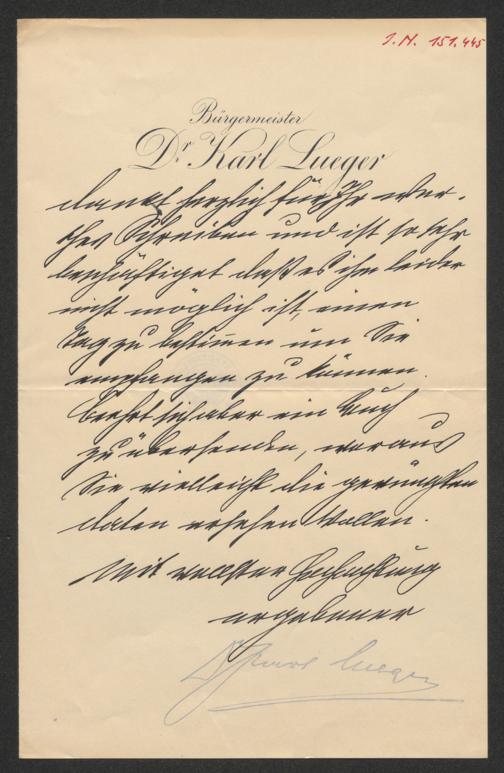 J.N. 151.445
Bürgermeister
Dr. Karl Lueger
dankt herzlich für Ihr
Schreiben und ist so sehr
beschäftiget daß es ihm leider
nicht möglich ist, einen
Tag zu bestimmen um Sie
empfangen zu können.
beehrt sich aber ein Buch
zu übersenden, woraus
Sie vielleicht die
Daten ersehen wollen.
Mit vollster Hochachtung
ergebener
Dr Karl Lueger